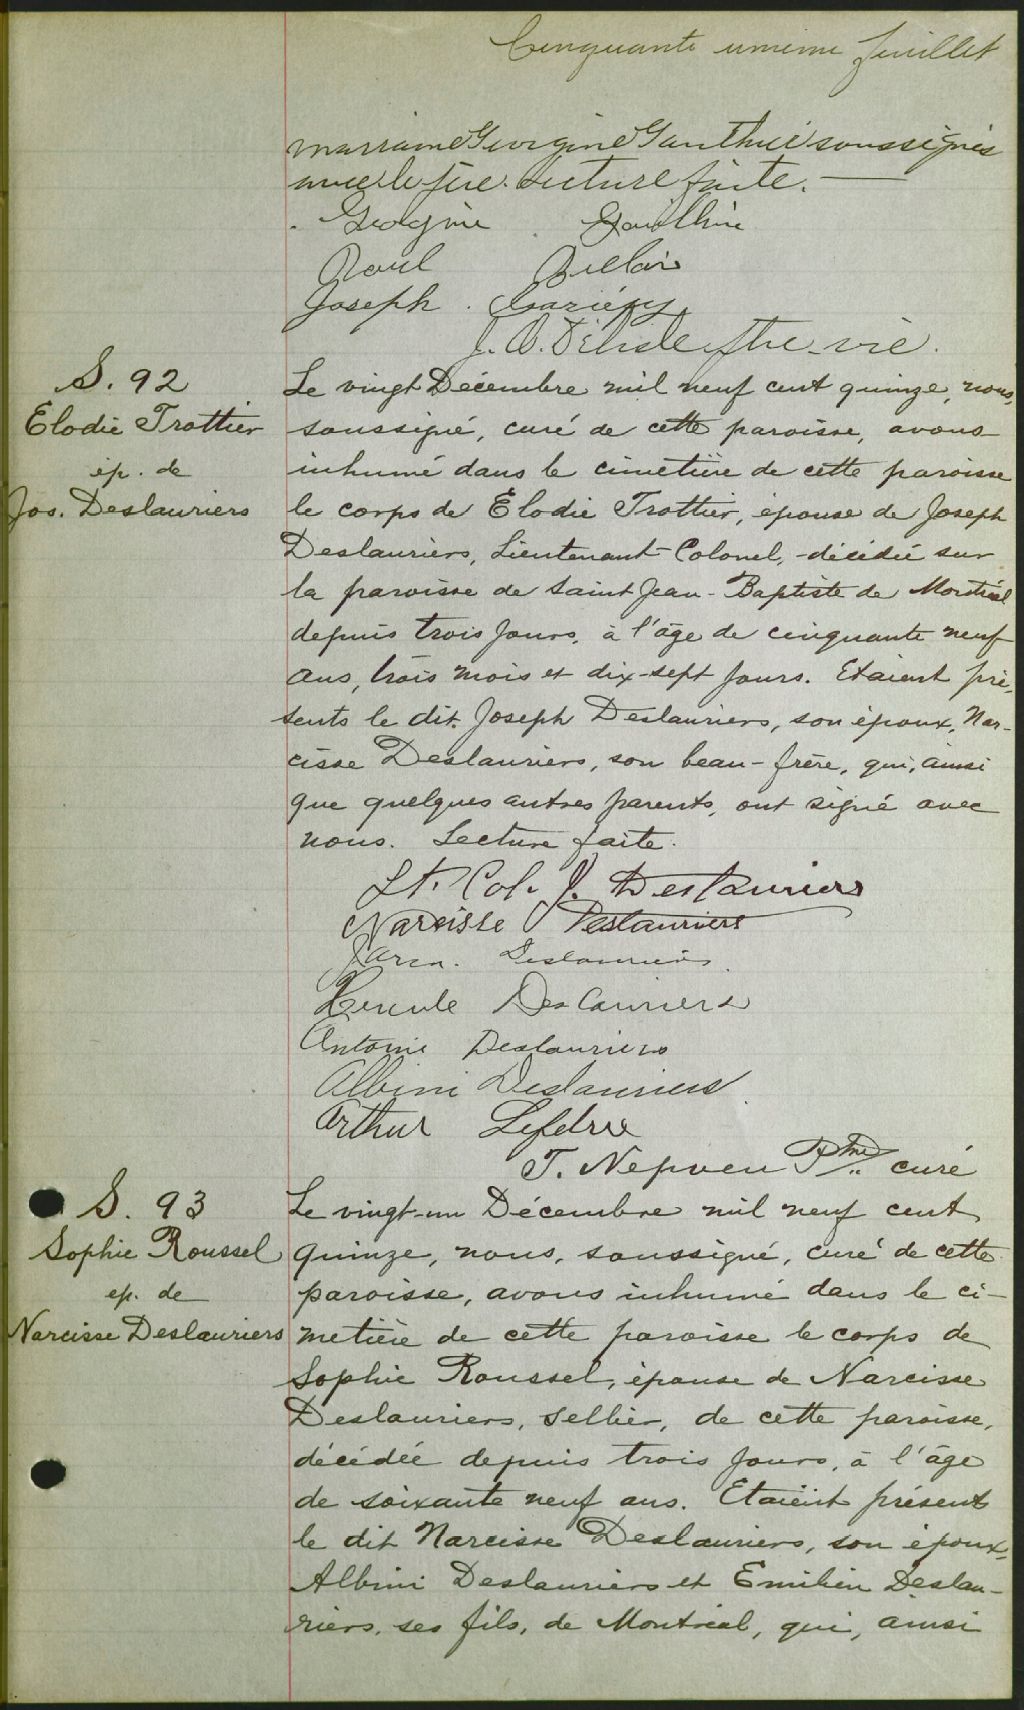 Cinquante unieme feuillet
marraine Georgine Gauthier soussignés
avec le père. Lecture faite. —
Georgine Gauthier
Raoul
Joseph Cariépy
J. O. Délisle Ptre-vic.
S. 92
Elodie Trottier
ép. de
Jos. Deslauriers
Le vingt Décembre mil neuf cent quinze, nous,
soussigné, curé de cette paroisse, avons
inhumé dans le cimetière de cette paroisse
le corps de Elodie Trottier, épouse de Joseph
Deslauriers, Lieutenant-Colonel, décédée sur
la paroisse de Saint Jean-Baptiste de Montréal
depuis trois jours, à l'âge de cinquante neuf
ans, trois mois et dix-sept jours. Etaient pré-
sents le dit Joseph Deslauriers, son époux, Nar-
cisse Deslauriers, son beau-frère, qui, ainsi
que quelques autres parents, ont signé avec
nous. Lecture faite.
Lt. Col. J. Deslauriers
Narcisse Deslauriers
Deslauriers
Hercule DesLauriers
Antonie Deslauriers
Albini Deslauriers
Arthur Lefebvre
T. Nepveu Ptre curé
S. 93
Sophie Roussel
ép. de
Narcisse Deslauriers
Le vingt-un Décembre mil neuf cent
quinze, nous, soussigné, curé de cette
paroisse, avons inhumé dans le ci-
metière de cette paroisse le corps de
Sophie Roussel, épouse de Narcisse
Deslauriers, sellier, de cette paroisse,
décédée depuis trois jours, à l'âge
de soixante neuf ans. Etaient présents
le dit Narcisse Deslauriers, son époux,
Albini Deslauriers et Emilien Deslau-
riers, ses fils, de Montréal, qui, ainsi